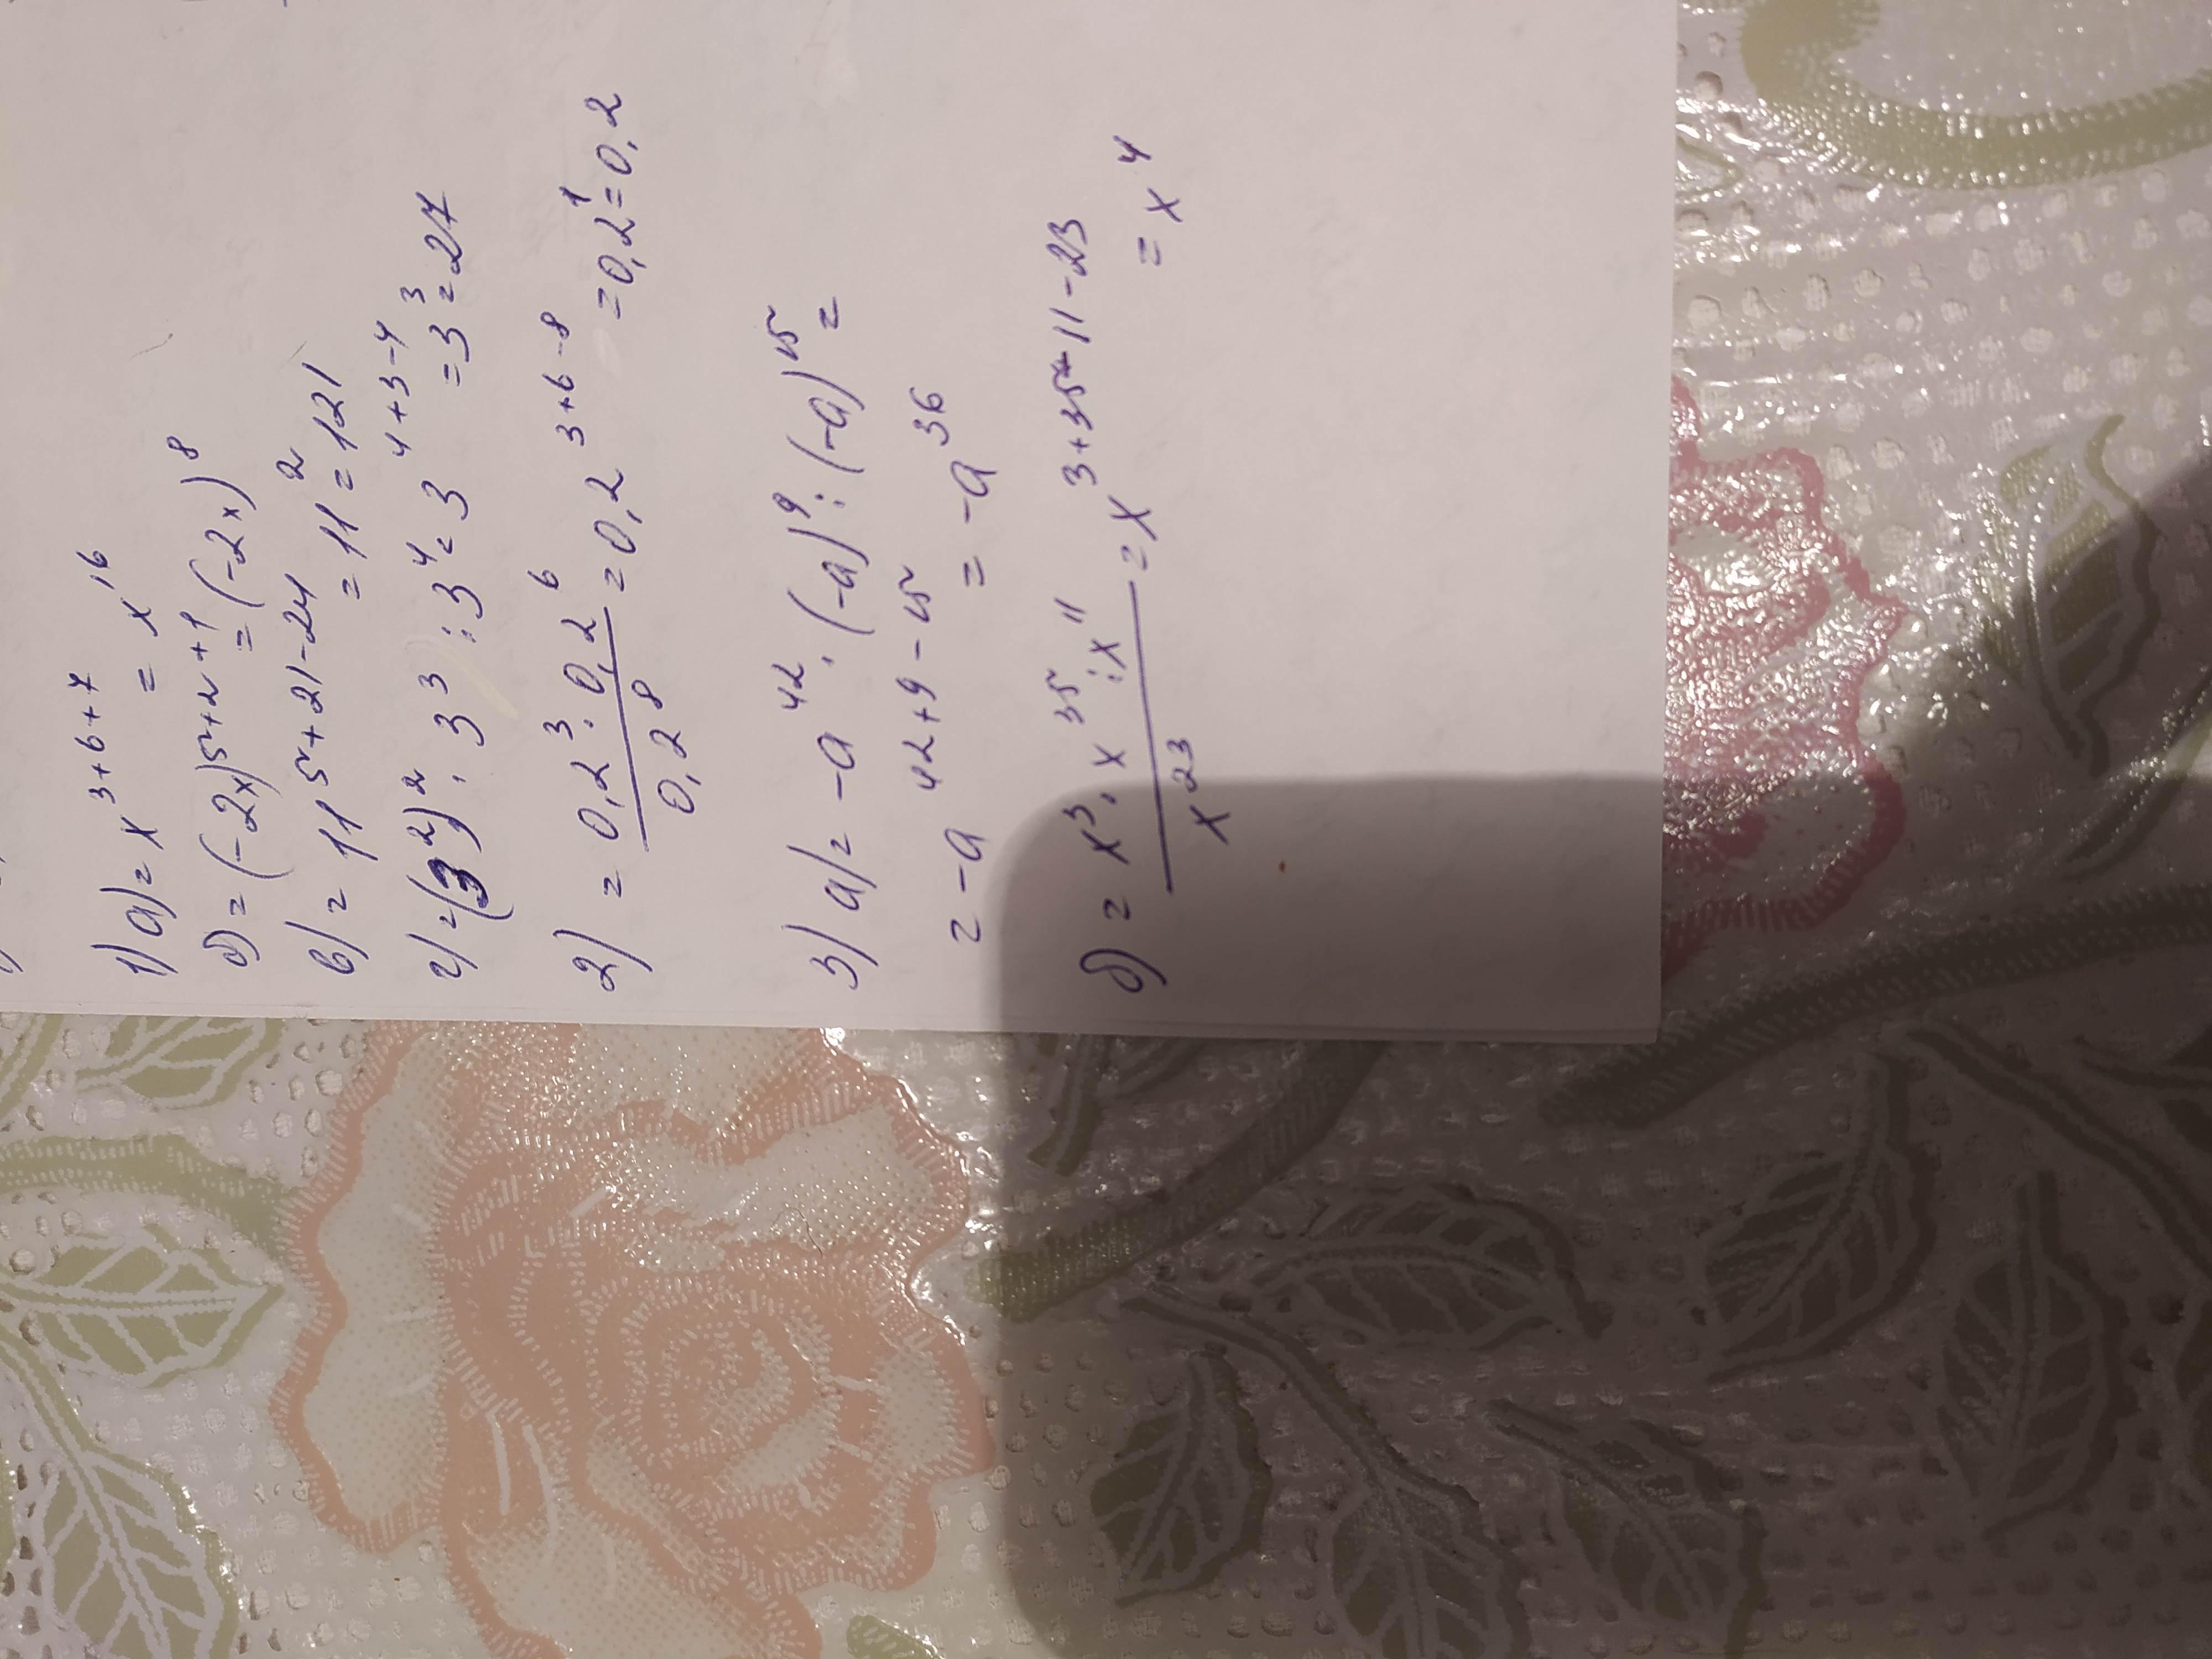 1) а) = x^{3+6+7} = x^{16}
б) = (-2x)^{5+2+1} = (-2x)^8
в) = 11^{5+21-24} = 11^2 = 121
г) = (3^2)^2 · 3^3 : 3^4 = 3^{4+3-4} = 3^3 = 27
2) = \frac{0,2^3 · 0,2^6}{0,2^8} = 0,2^{3+6-8} = 0,2^1 = 0,2
3) а) = -a^{42} · (-a)^9 : (-a)^{15} =
= -a^{42+9-15} = -a^{36}
б) = \frac{x^3 · x^{35} : x^{11}}{x^{23}} = x^{3+35-11-23} = x^4